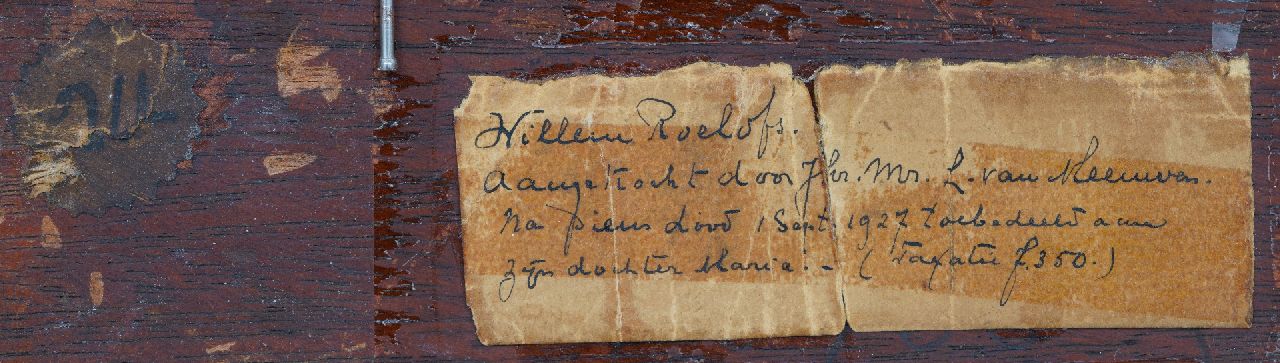 Willem Roelofs.
Aangekocht door Jhr. Mr. L. van Meeuwen.
Na diens dood 1 Sept. 1927 toebedeeld aan
zijn dochter Maria. - (Taxatie f. 350.)